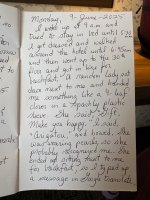 Monday, 9-June-2025
I woke up at 4 am and
tried to stay in bed until 5:30
I got dressed and walked
around the hotel until 6:45am
and then went up to the 30th
floor and got in line for
breakfast. A random lady sat
down next to me and handed
me something like a 4-leaf
clover in a sparkly plastic
sleeve. She said "Gift.
Make you happy." I said
"Arigatou," and bowed. She
was wearing pearls, so she
probably recognized me. She
ended up sitting next to me
for breakfast, so I typed up
a message in Google Translate